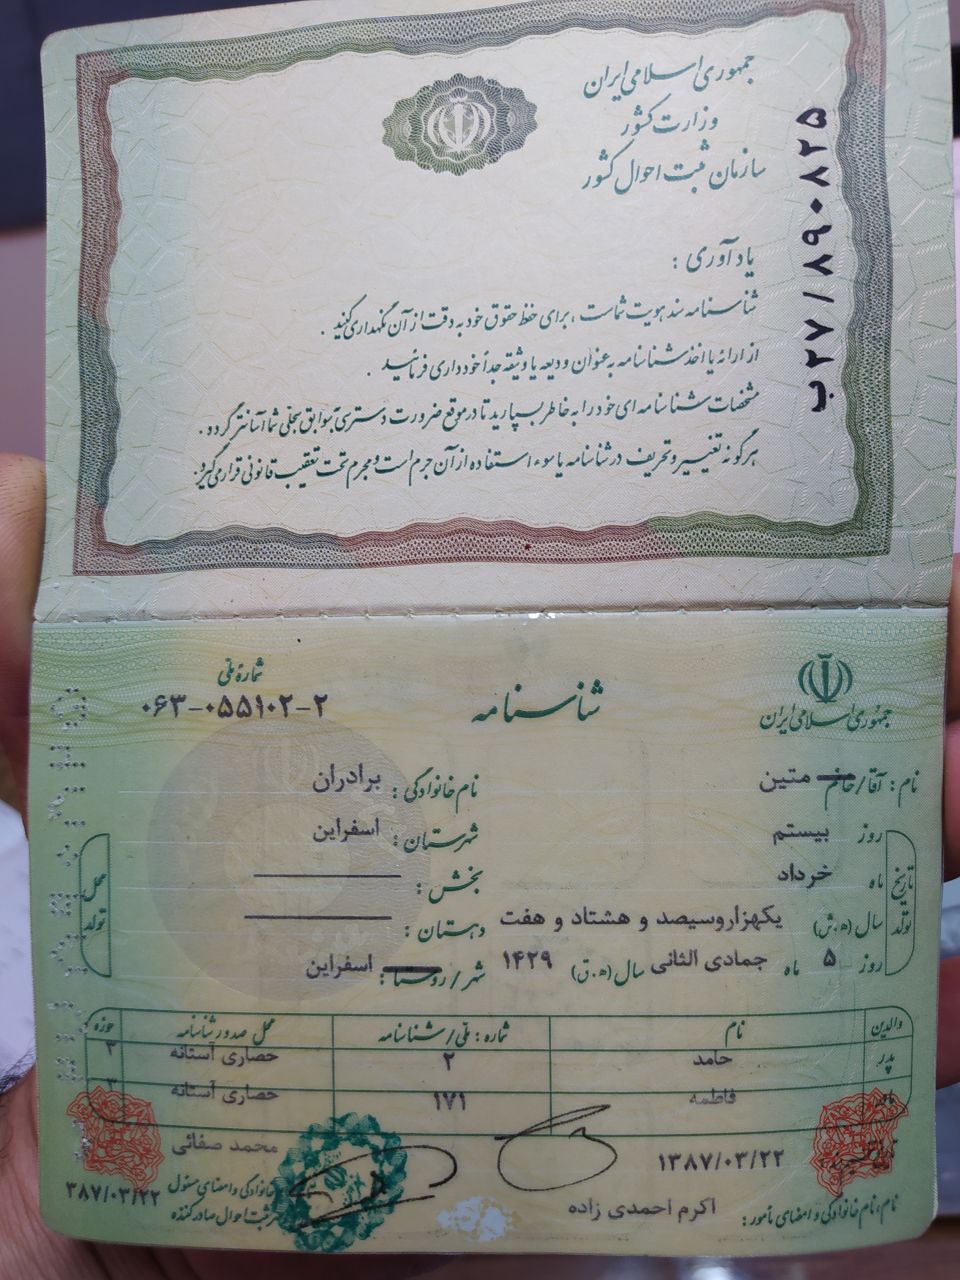 جمهوری اسلامی ایران
وزارت کشور
سازمان ثبت احوال کشور
ب ۲۷/۸۹۰۸۲۵
یادآوری :
شناسنامه سند هویت شماست ، برای حفظ حقوق خود به دقت از آن نگهداری کنید .
از ارائه یا اخذ شناسنامه به عنوان ودیعه یا وثیقه جداً خودداری فرمائید .
مشخصات شناسنامه ای خود را به خاطر بسپارید تا در موقع ضرورت دسترسی به سوابق سجلی شما آسانتر گردد .
هرگونه تغییر و تحریف در شناسنامه یا سوء استفاده از آن جرم است و مجرم تحت تعقیب قانونی قرار می گیرد.
جمهوری اسلامی ایران
شناسنامه
شماره ملی
۰۶۳-۰۵۵۱۰۲-۲
نام : آقا/خانم متین
نام خانوادگی : برادران
تاریخ تولد
روز بیستم
ماه خرداد
سال (ه.ش) یکهزاروسیصد و هشتاد و هفت
روز ۵ ماه جمادی الثانی سال (ه.ق) ۱۴۲۹
محل تولد
شهرستان : اسفراین
بخش :
دهستان :
شهر/روستا : اسفراین
والدین نام شماره : ملی/شناسنامه محل صدور شناسنامه حوزه
پدر حامد ۲ حصاری آستانه ۳
مادر فاطمه ۱۷۱ حصاری آستانه ۳
۱۳۸۷/۰۳/۲۲
نام، نام خانوادگی و امضای مأمور : اکرم احمدی زاده
محمد صفائی
خانوادگی و امضای مسئول
ثبت احوال صادرکننده
۳۸۷/۰۳/۲۲